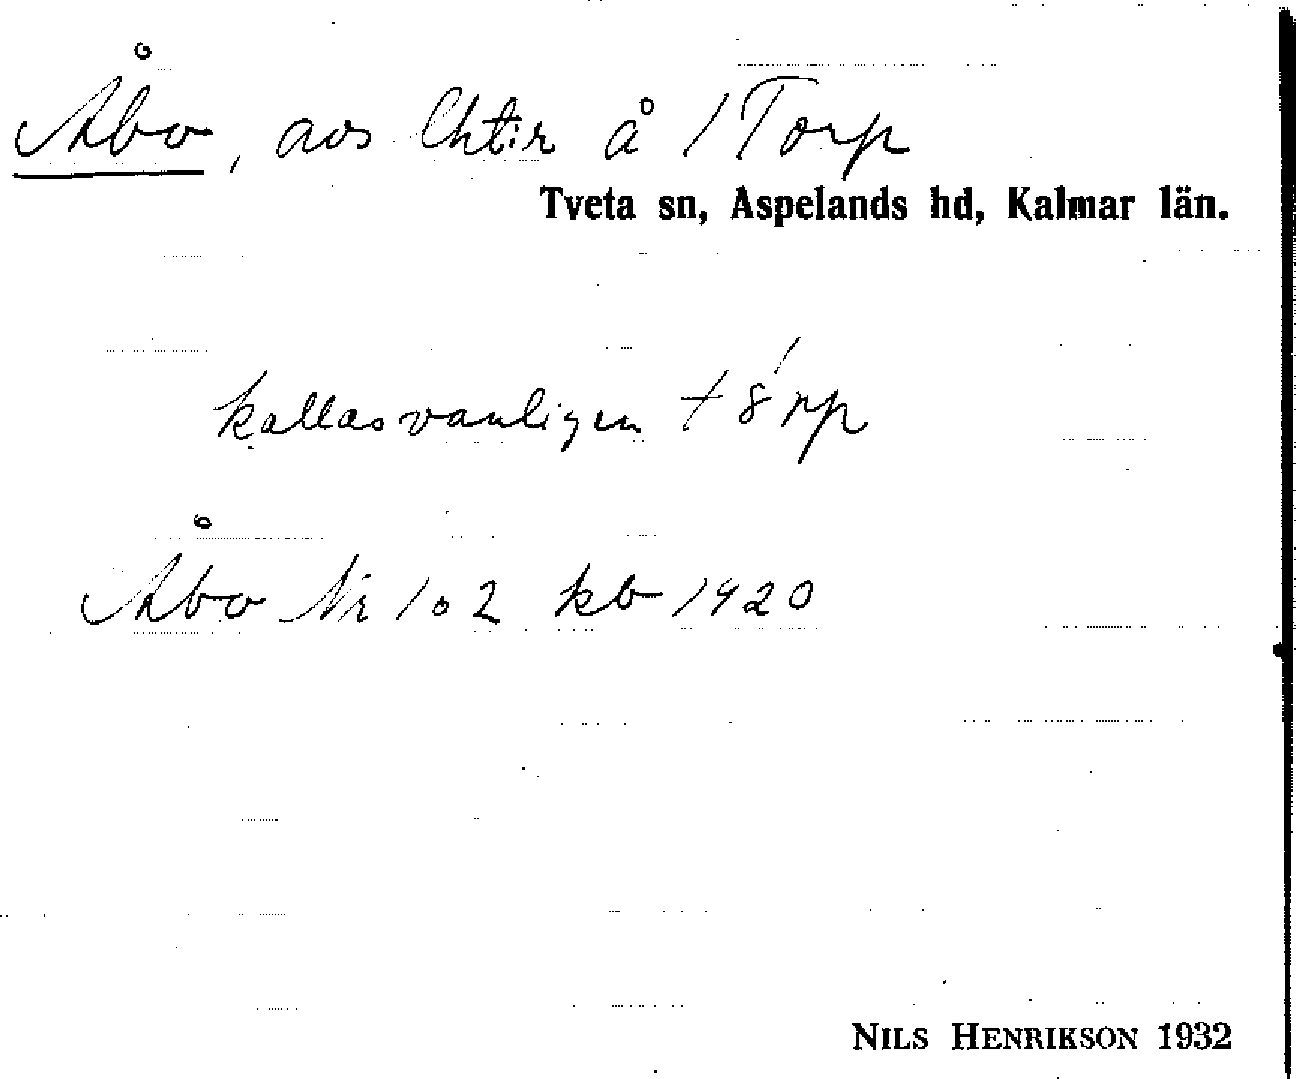 Åbo, avs lhtir å 1 Torp
Tveta sn, Aspelands hd, Kalmar län.
kallas vanligen t8´rp
Åbo Nr 102 kb 1920
NILS HENRIKSON 1932